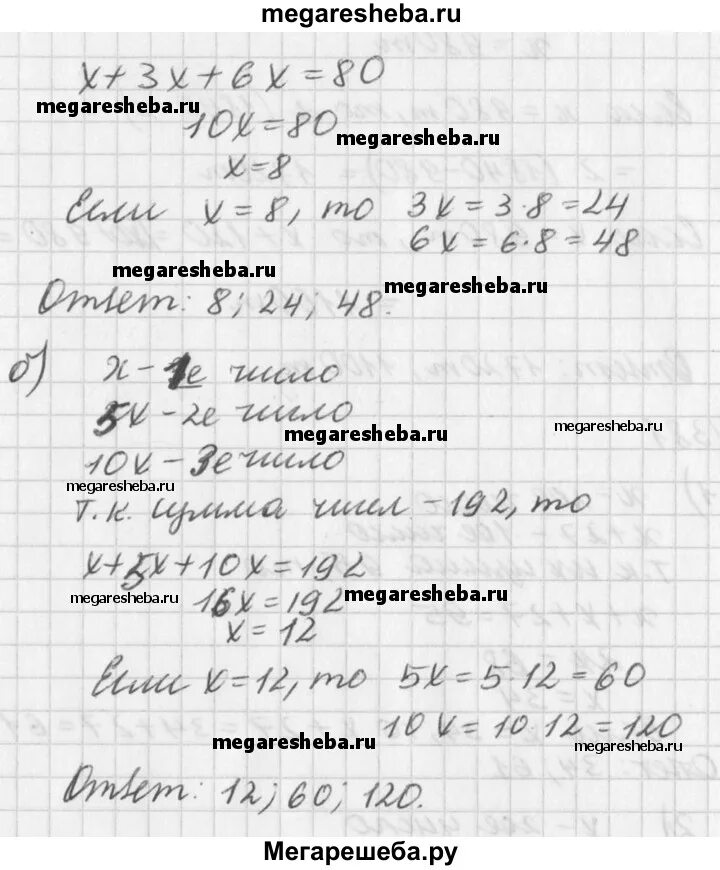 megaresheba.ru
x+3x+6x=80
megaresheba.ru
10x=80 megaresheba.ru
x=8
Если x=8, то 3x=3·8=24
6x=6·8=48
megaresheba.ru megaresheba.ru
Ответ: 8; 24; 48.
б) x - 1е число
5x - 2е число
megaresheba.ru megaresheba.ru
10x - 3е число
megaresheba.ru
т.к. сумма чисел - 192, то
x+5x+10x=192
megaresheba.ru 16x=192 megaresheba.ru
x=12
Если x=12, то 5x=5·12=60
10x=10·12=120
megaresheba.ru megaresheba.ru
Ответ: 12; 60; 120.
Мегарешеба.ру